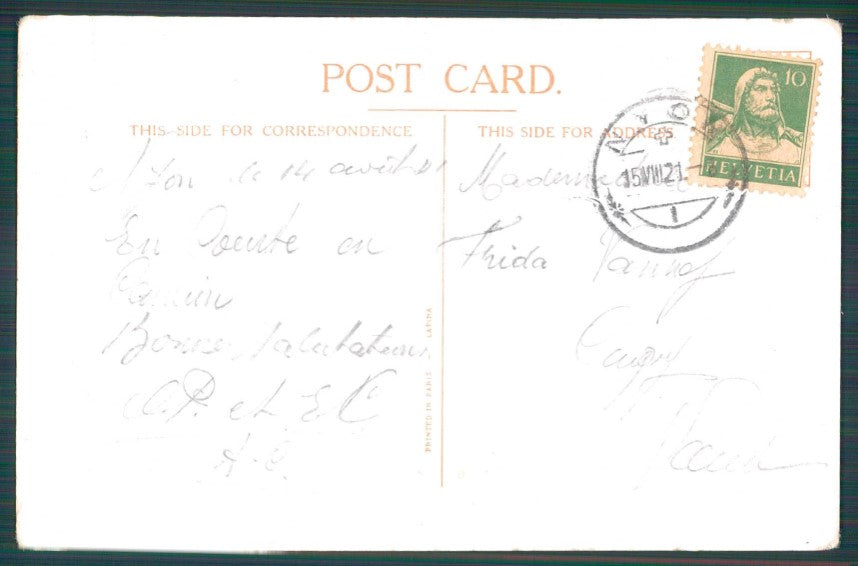 POST CARD.
THIS SIDE FOR CORRESPONDENCE
THIS SIDE FOR ADDRESS
10
HELVETIA
NYON
15.VIII.21.
1
Nyon le 14 août 21
En Course en
Camion
Bonnes Salutations
A.P. et E C
A. C.
Mademoiselle
Frida
Cugy
Vaud
PRINTED IN PARIS